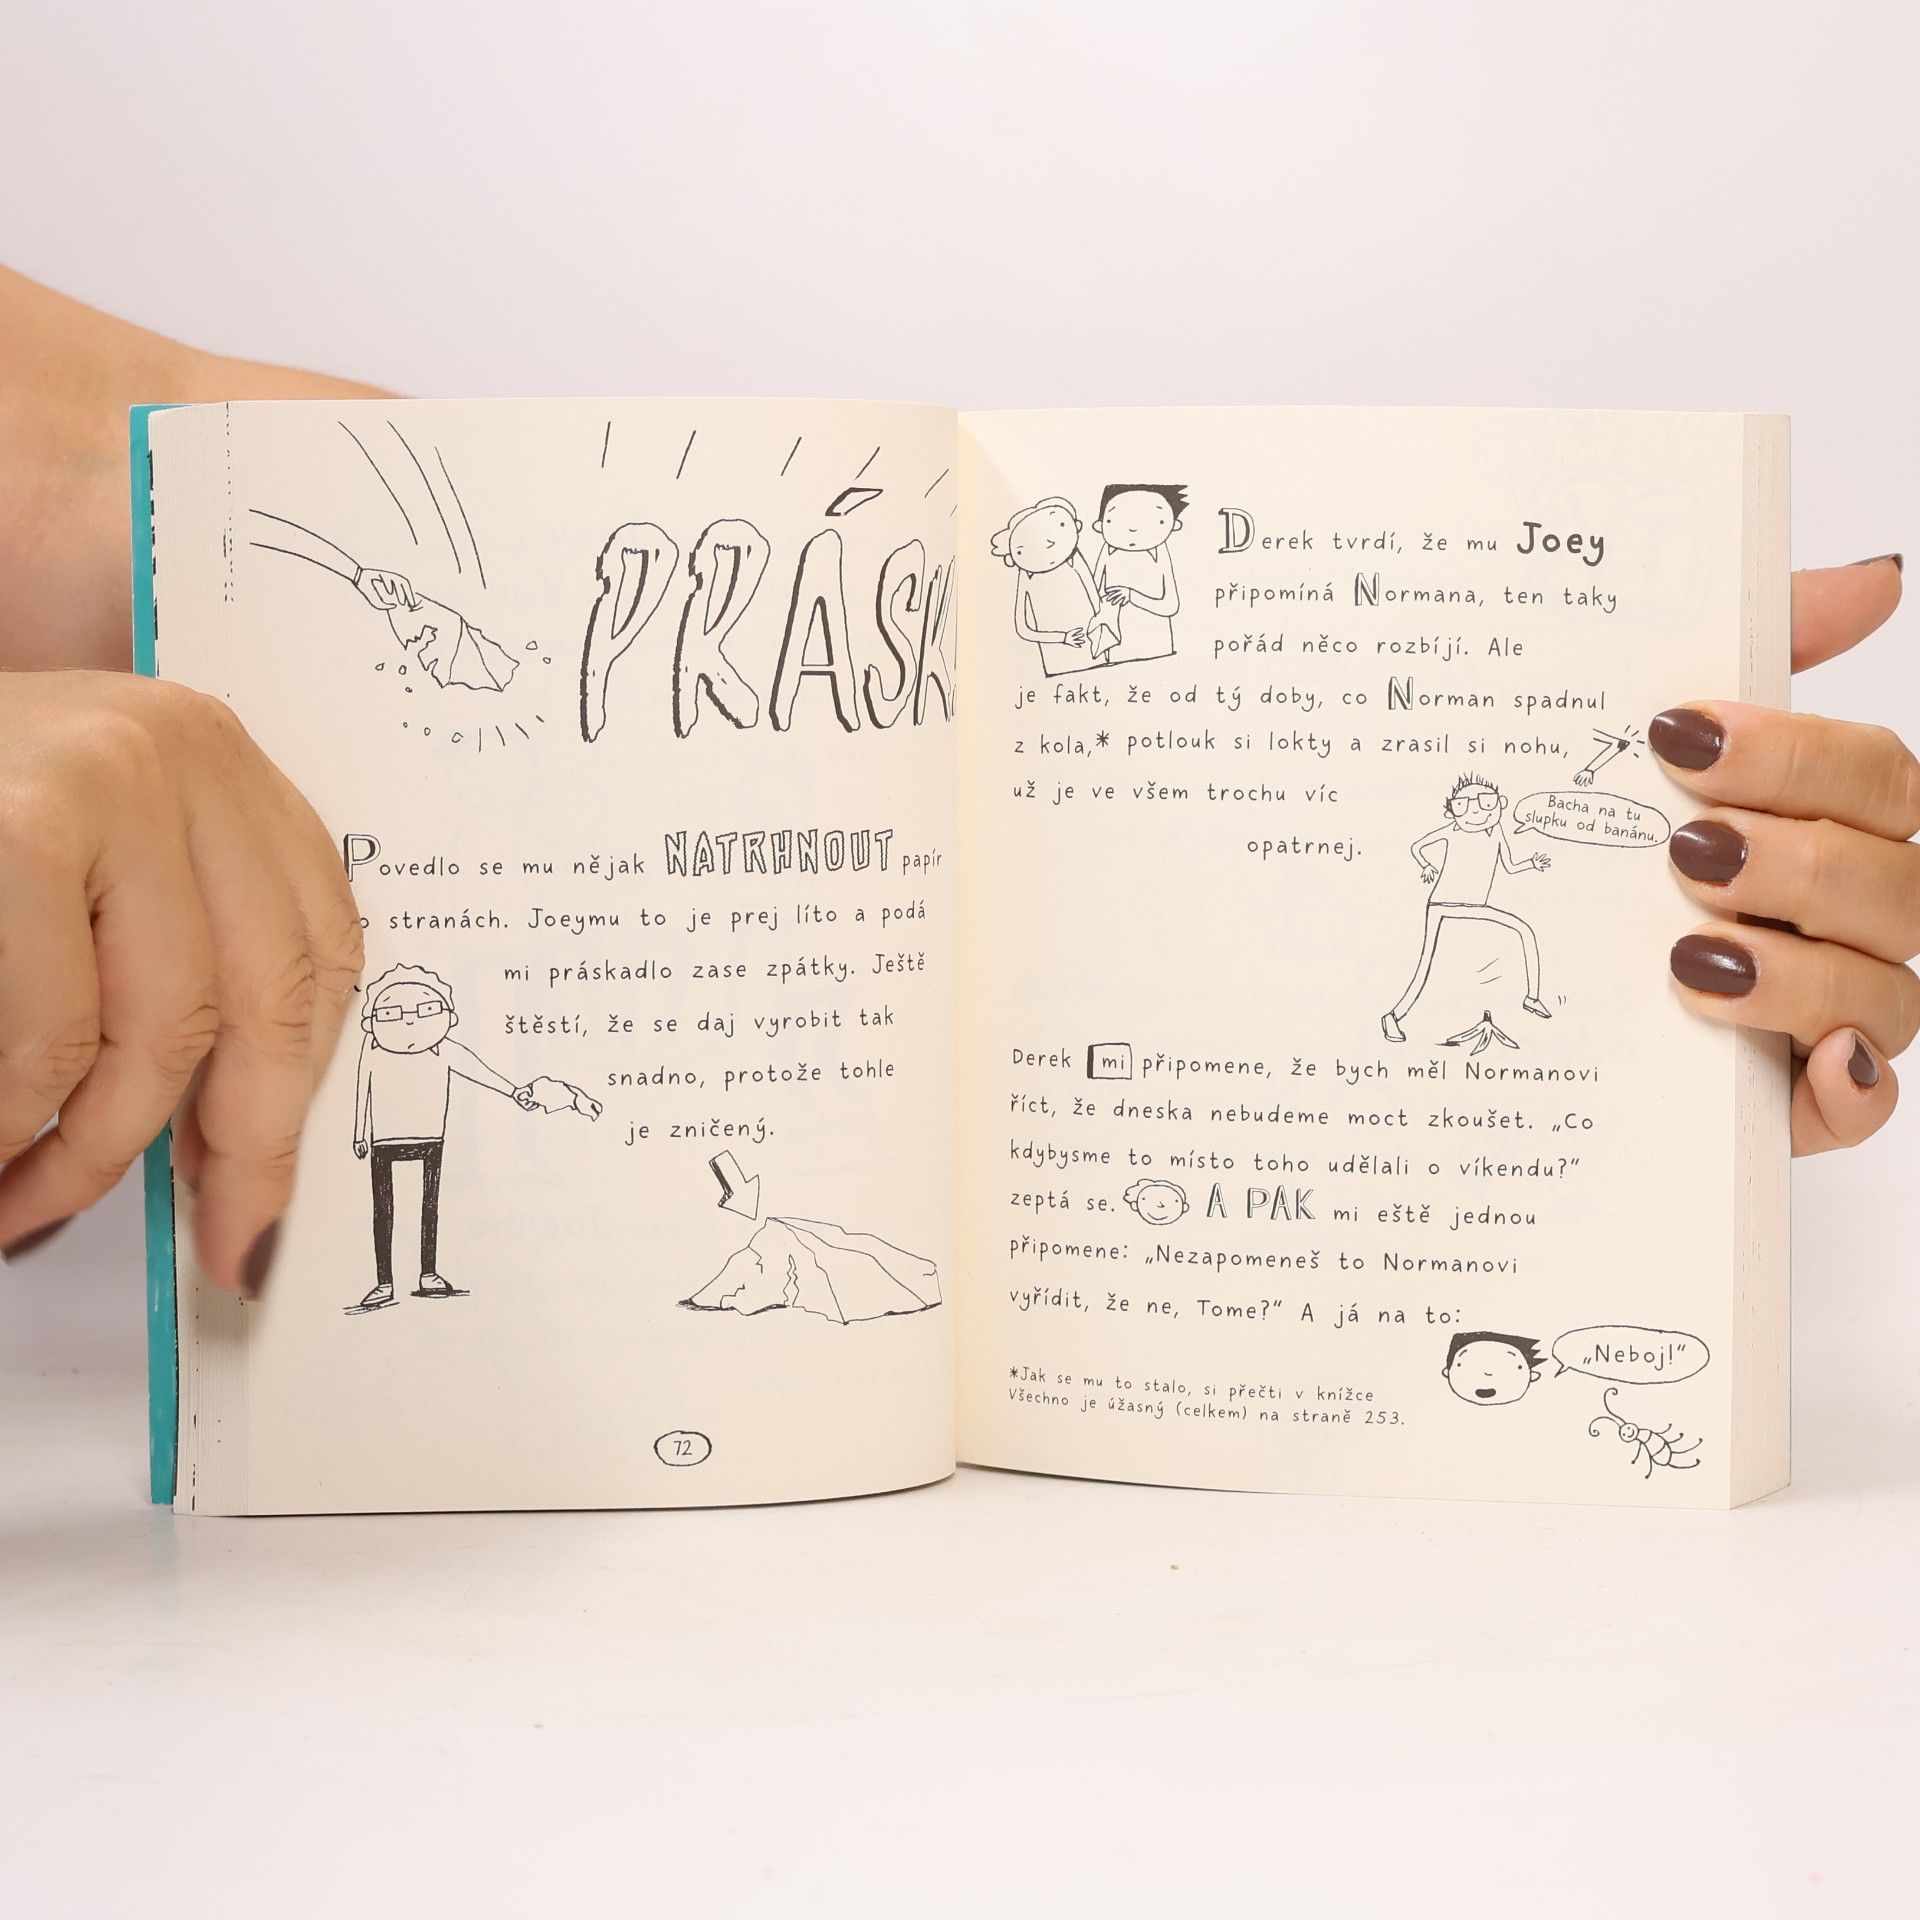 PRÁSK
Povedlo se mu nějak NATRHNOUT papír
stranách. Joeymu to je prej líto a podá
mi práskadlo zase zpátky. Ještě
štěstí, že se daj vyrobit tak
snadno, protože tohle
je zničený.
72
Derek tvrdí, že mu Joey
připomíná Normana, ten taky
pořád něco rozbíjí. Ale
je fakt, že od tý doby, co Norman spadnul
z kola,* potlouk si lokty a zrasil si nohu,
už je ve všem trochu víc
opatrnej.
Bacha na tu
slupku od banánu.
Derek mi připomene, že bych měl Normanovi
říct, že dneska nebudeme moct zkoušet. „Co
kdybysme to místo toho udělali o víkendu?“
zeptá se. A PAK mi eště jednou
připomene: „Nezapomeneš to Normanovi
vyřídit, že ne, Tome?“ A já na to:
„Neboj!“
*Jak se mu to stalo, si přečti v knížce
Všechno je úžasný (celkem) na straně 253.